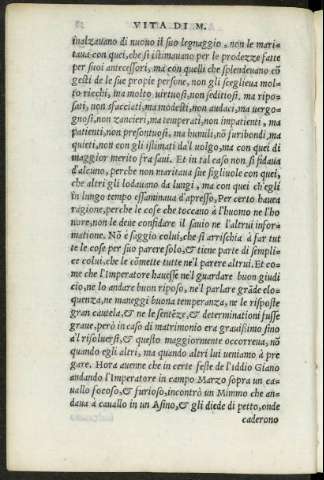 VITA DI M.
inalzauano di nuouo il suo legnaggio, non le mari-
taua con quei, che si istimauano per le prodezze fatte
per suoi antecessori, ma con quelli che splendeuano cō
gesti de le sue propie persone, non gli sceglieua mol-
to ricchi, ma molto virtuosi, non seditiosi, ma ripo-
sati, non sfacciati, ma modesti, non audaci, ma uergo-
gnosi, non zancieri, ma temperati, non impatienti, ma
patienti, non presontuosi, ma humili, nō furibondi, ma
quieti, non con gli istimati dal uolgo, ma con quei di
maggior merito fra saui. Et in tal caso non si fidaua
d'alcuno, perche non maritaua sue figliuole con quei,
che altri gli lodauano da lungi, ma con quei ch'egli
in lungo tempo essaminaua d'apresso, Per certo haueua
ragione, perche le cose che toccano à l'huomo ne l'ho
nore, non le deue confidare il sauio ne l'altrui infor-
matione. Nō è saggio colui, che si arrischia à far tut
te le cose per suo parere solo, & tiene parte di sempli-
ce colui, che le cōmette tutte ne'l parere altrui. Et co-
me che l'Imperatore hauesse ne'l guardare buon giudi
cio, ne lo andare buon riposo, ne'l parlare grāde elo-
quenza, ne maneggi buona temperanza, ne le risposte
gran cautela, & ne le sentēze, & determinationi fusse
graue, però in caso di matrimonio era grauissimo sino
al risoluersi, & questo maggiormente occorreua, nō
quando egli altri, ma quando altri lui ueniano à pre
gare. Hora auenne che in certe feste de l'Iddio Giano
andando l'Imperatore in campo Marzo sopra un ca-
uallo focoso, & furioso, incontrò un Mimmo che an-
daua à cauallo in un Asino, & gli diede di petto, onde
caderono